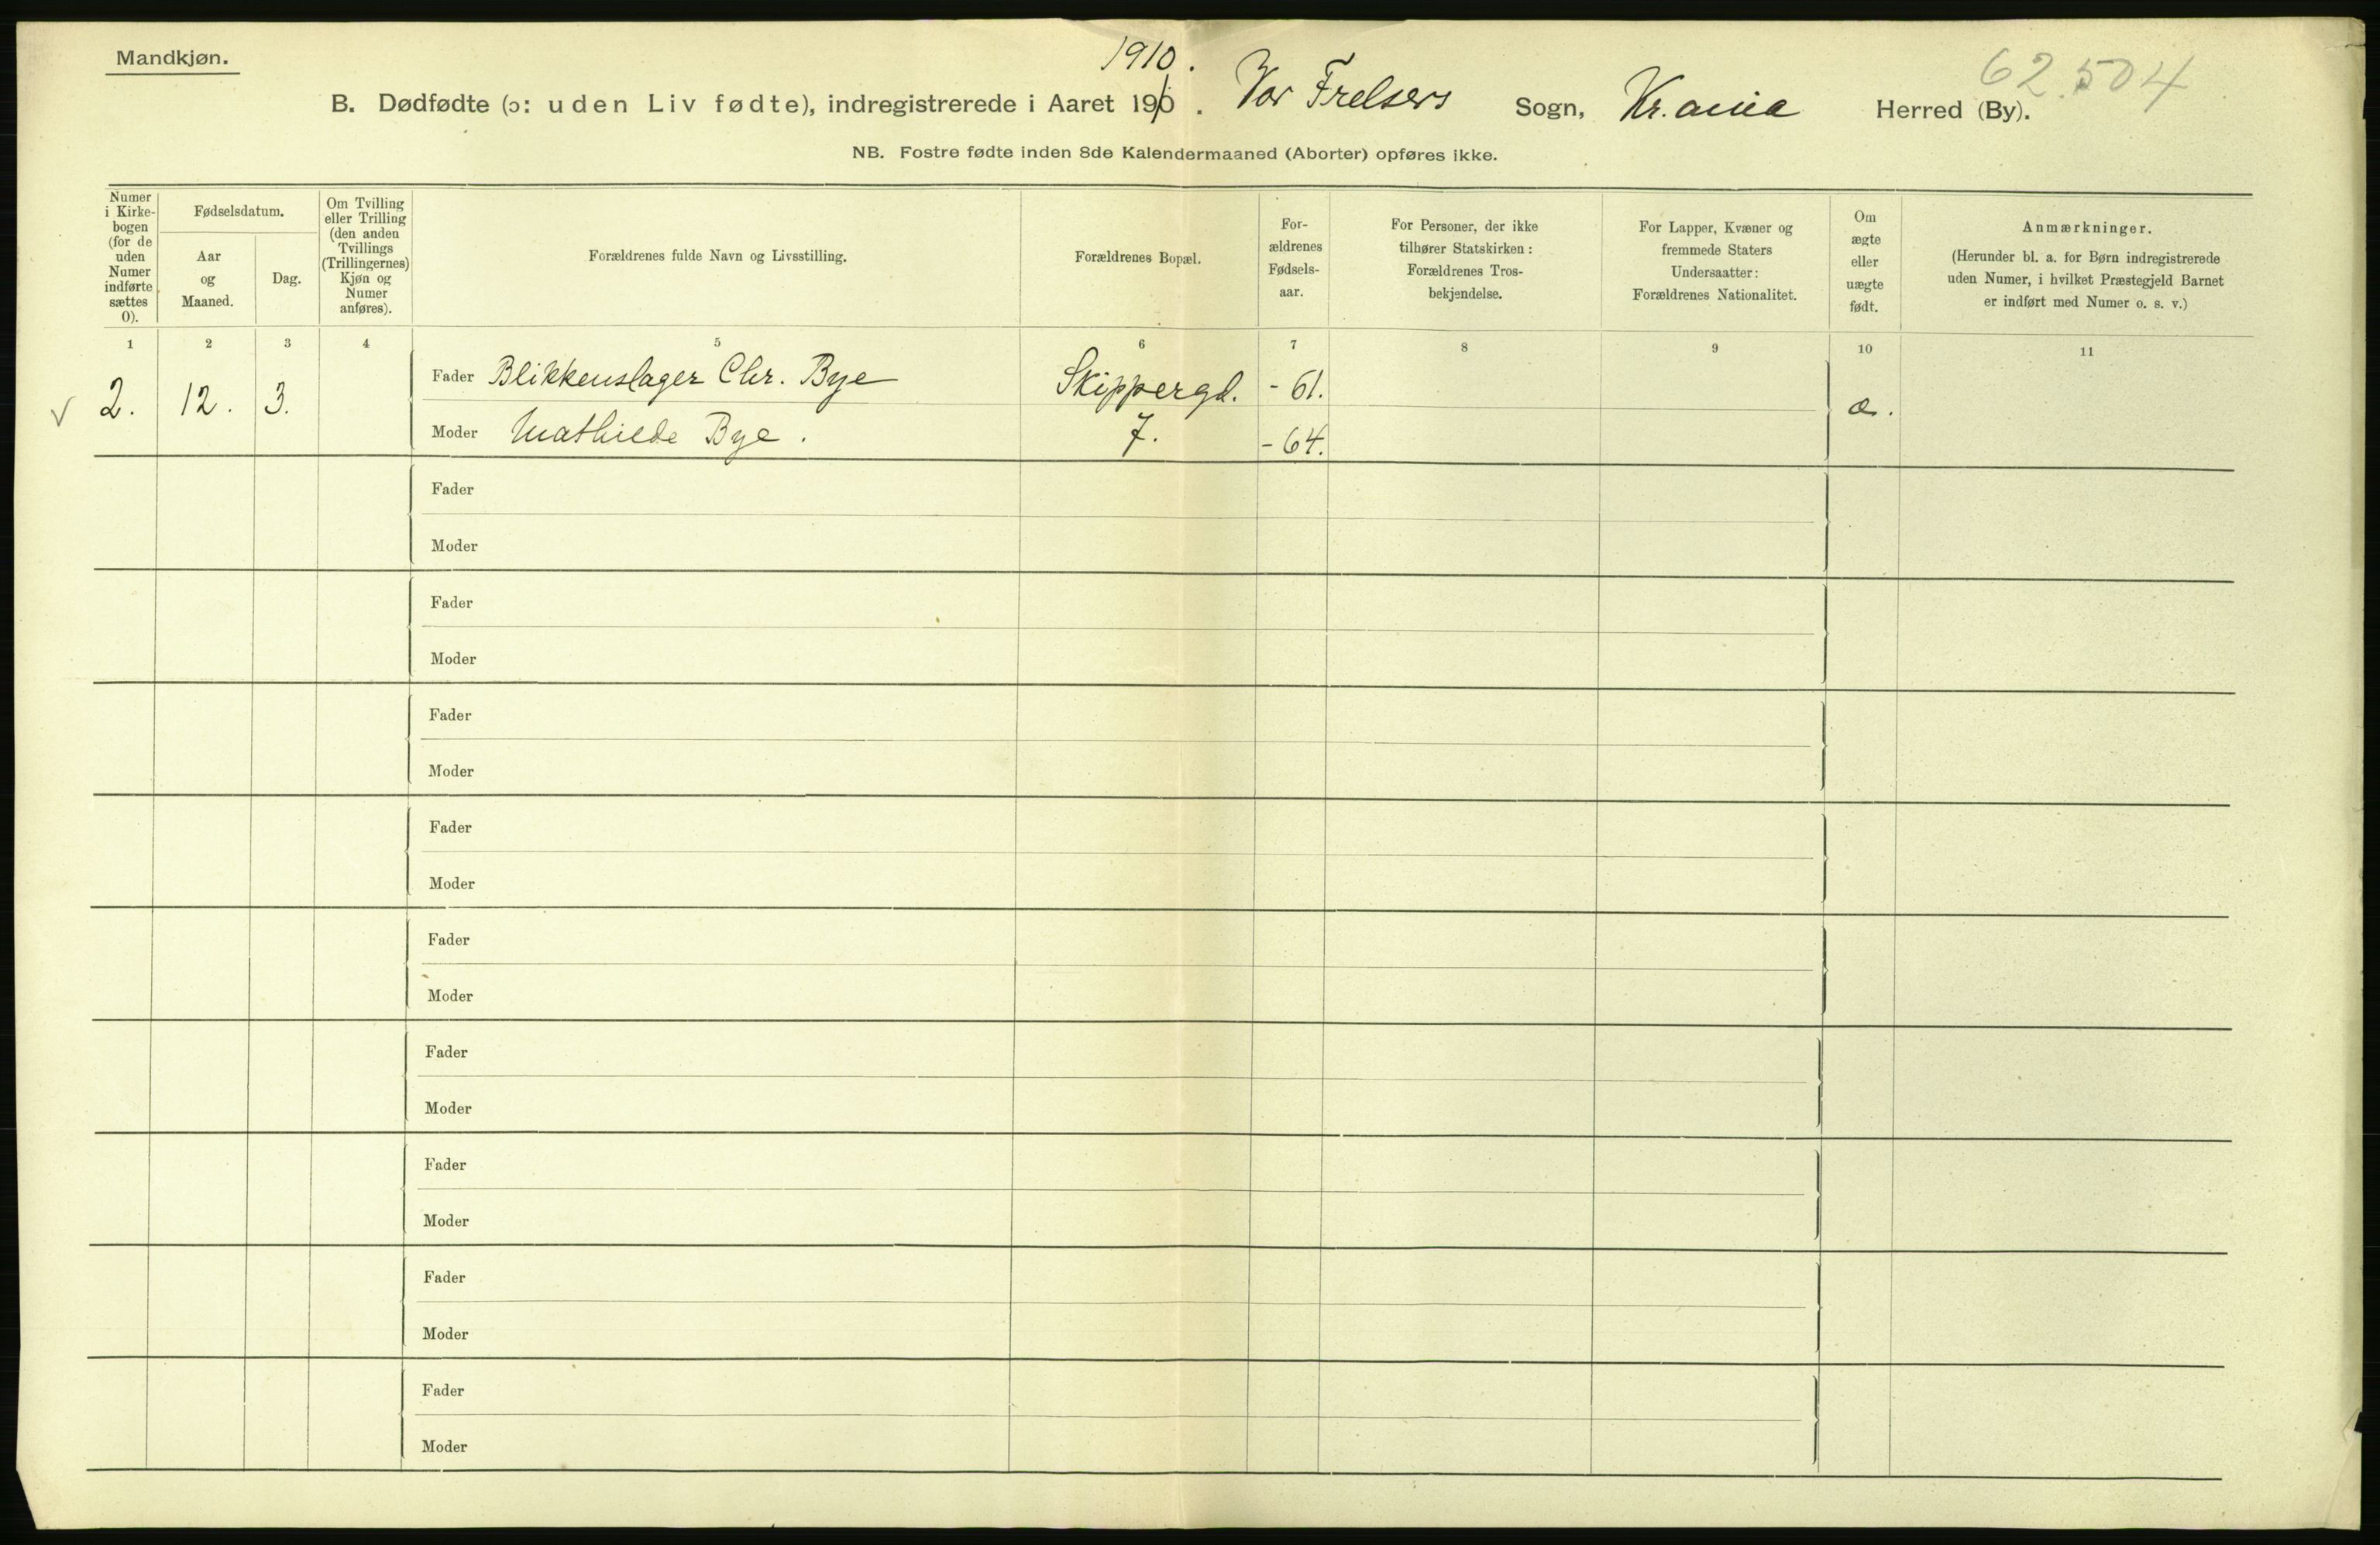 Mandkjøn.
1910.
62.504
B. Dødfødte (ɔ: uden Liv fødte), indregistrerede i Aaret 190. Vor Frelsers Sogn, Kr.ania Herred (By).
NB. Fostre fødte inden 8de Kalendermaaned (Aborter) opføres ikke.
Numer i Kirke-bogen (for de uden Numer indførte sættes 0).
Fødselsdatum.
Aar og Maaned.
Dag.
Om Tvilling eller Trilling (den anden Tvillings (Trillingernes) Kjøn og Numer anføres).
Forældrenes fulde Navn og Livsstilling.
Forældrenes Bopæl.
For-ældrenes Fødsels-aar.
For Personer, der ikke tilhører Statskirken: Forældrenes Tros-bekjendelse.
For Lapper, Kvæner og fremmede Staters Undersaatter: Forældrenes Nationalitet.
Om ægte eller uægte født.
Anmærkninger.
(Herunder bl. a. for Børn indregistrerede uden Numer, i hvilket Præstegjeld Barnet er indført med Numer o. s. v.)
1 2 3 4 5 6 7 8 9 10 11
Fader Blikkenslager Chr. Bye Skippergd. - 61.
√ 2. 12. 3. æ.
Moder Mathilde Bye. 7. - 64.
Fader
Moder
Fader
Moder
Fader
Moder
Fader
Moder
Fader
Moder
Fader
Moder
Fader
Moder
Fader
Moder
Fader
Moder